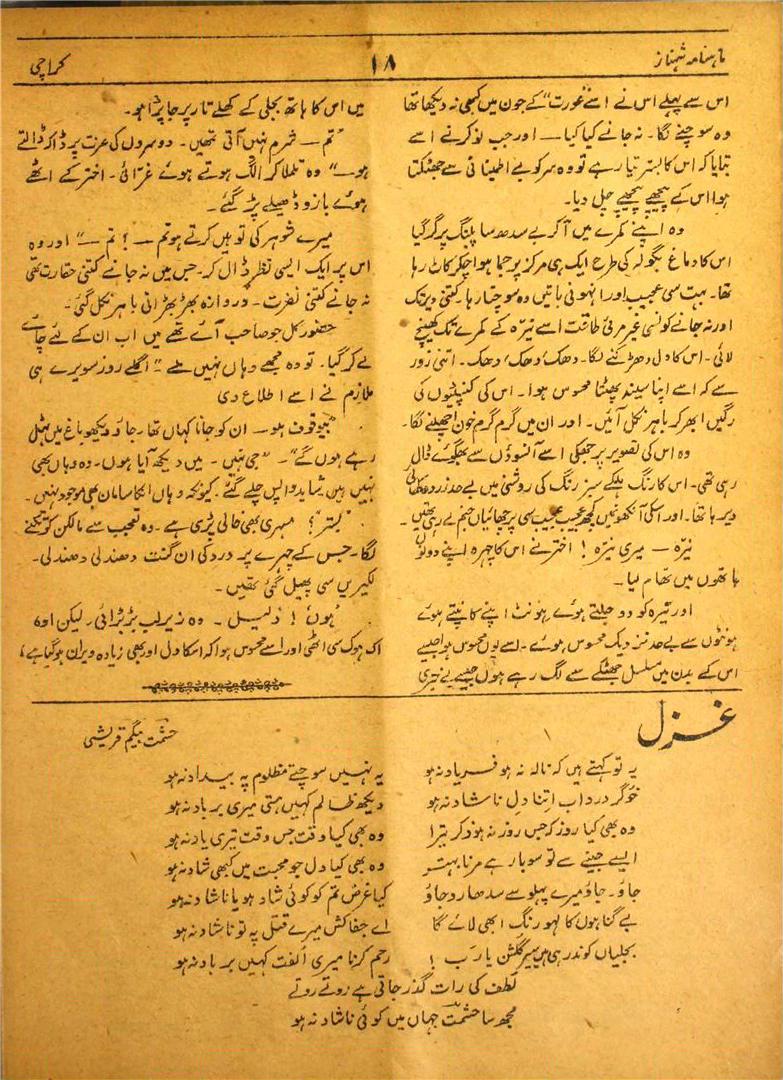 ماہنامہ شہناز
۱۸
کراچی
اس سے پہلے اس نے اسے "عورت" کے جون میں کبھی نہ دیکھا تھا
وہ سوچنے لگا۔ نہ جانے کیا کیا — اور جب نوکر نے اسے
بتایا کہ اس کا بستر تیار ہے تو وہ سر کو بے اطمینانی سے جھٹکتا
ہوا اس کے پیچھے پیچھے چل دیا۔
وہ اپنے کمرے میں آ کر بے سدھ سا پلنگ پر گر گیا
اس کا دماغ بگولہ کی طرح ایک ہی مرکز پر جما ہوا چکر کاٹ رہا
تھا۔ بہت سی عجیب اور انہونی باتیں وہ سوچتا رہا۔ کتنی دیر تک
اور نہ جانے کونسی غیر مرئی طاقت اسے نیّرہ کے کمرے تک کھینچ
لائی۔ اس کا دل دھڑکنے لگا۔ دھک، دھک، دھک۔ اتنی زور
سے کہ اسے اپنا سینہ پھٹتا محسوس ہوا۔ اس کی کنپٹیوں کی
رگیں ابھر کر باہر نکل آئیں۔ اور ان میں گرم گرم خون اچھلنے لگا۔
وہ اس کی تصویر پر جھکی اسے آنسوؤں سے بھگوئے ڈال
رہی تھی۔ اس کا رنگ ہلکے سبز رنگ کی روشنی میں بے حد زرد دکھائی
دیرہا تھا۔ اور اسکی آنکھوں میں کچھ عجیب عجیب سی پرچھائیاں جنم لے رہی تھیں۔
نیّرہ — میری نیّرہ! اختر نے اس کا چہرہ اپنے دونوں
ہاتھوں میں تھام لیا۔
اور نیّرہ کو دو جلتے ہوئے ہونٹ اپنے کانپتے ہوئے
ہونٹوں سے بے حد نزدیک محسوس ہوئے۔ اسے یوں محسوس ہوا جیسے
اس کے بدن میں مسلسل جھٹکے سے لگ رہے ہوں جیسے بے خبری
میں اس کا ہاتھ بجلی کے کھلے تار پر جا پڑا ہو۔
"تم — شرم نہیں آتی تمہیں۔ دوسروں کی عزت پر ڈاکہ ڈالتے
ہو —" وہ تلملا کر الگ ہوتے ہوئے غرائی۔ اختر کے اٹھے
ہوئے بازو ڈھیلے پڑ گئے۔
میرے شوہر کی توہین کرتے ہو تم — ! تم —" اور وہ
اس پر ایک ایسی نظر ڈال کر۔ جس میں نہ جانے کتنی حقارت تھی
نہ جانے کتنی نفرت۔ دروازہ بھڑبھڑاتی باہر نکل گئی۔
حضور کل جو صاحب آئے تھے میں اب ان کے لئے چائے
لے کر گیا۔ تو وہ مجھے وہاں نہیں ملے" اگلے روز سویرے ہی
ملازم نے اسے اطلاع دی
"بیوقوف ہو — ان کو جانا کہاں تھا۔ جاؤ دیکھو باغ میں ٹہل
رہے ہوں گے"۔ "جی نہیں۔ میں دیکھ آیا ہوں۔ وہ وہاں بھی
نہیں ہیں شاید واپس چلے گئے۔ کیونکہ وہاں انکا سامان بھی موجود نہیں۔
"بستر"؟ مسہری بھی خالی پڑی ہے۔ وہ تعجب سے مالکن کو تکنے
لگا۔ جس کے چہرے پر درد کی ان گنت دھندلی دھندلی۔
لکیریں سی پھیل گئی تھیں۔
"ہوں! ذلیل۔ وہ زیر لب بڑبڑائی۔ لیکن اوہ
اک ہوک سی اٹھی اور اسے محسوس ہوا کہ اسکا دل اور بھی زیادہ ویران ہو گیا ہے،
غزل
حشمت بیگم قریشی
یہ تو کہتے ہیں کہ نالہ نہ ہو فسریاد نہ ہو
یہ نہیں سوچتے مظلوم پہ بیداد نہ ہو
خوگر درد اب اتنا دلِ ناشاد نہ ہو
دیکھ ظالم کہیں ہستی میری برباد نہ ہو
وہ بھی کیا روز کہ جس روز نہ ہو ذکر ترا
وہ بھی کیا وقت جس وقت تیری یاد نہ ہو
ایسے جینے سے تو سو بار ہے مرنا بہتر
وہ بھی کیا دل جو محبت میں کبھی شاد نہ ہو
جاؤ۔ جاؤ میرے پہلو سے سدھارو جاؤ
کیا غرض تم کو کوئی شاد ہو یا ناشاد نہ ہو
بے گناہوں کا لہو رنگ ابھی لائے گا
اے جفاکش میرے قتل پہ تو ناشاد نہ ہو
بجلیاں کوند رہی ہیں سرِ گلشن یا رب!
رحم کرنا میری اُلفت کہیں برباد نہ ہو
لطف کی رات گذر جاتی ہے روتے روتے
مجھ سا حشمتؔ جہاں میں کوئی ناشاد نہ ہو